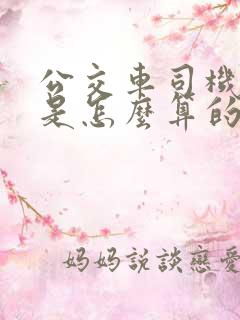 公交車司機
是怎麼算的
妈妈説談戀愛